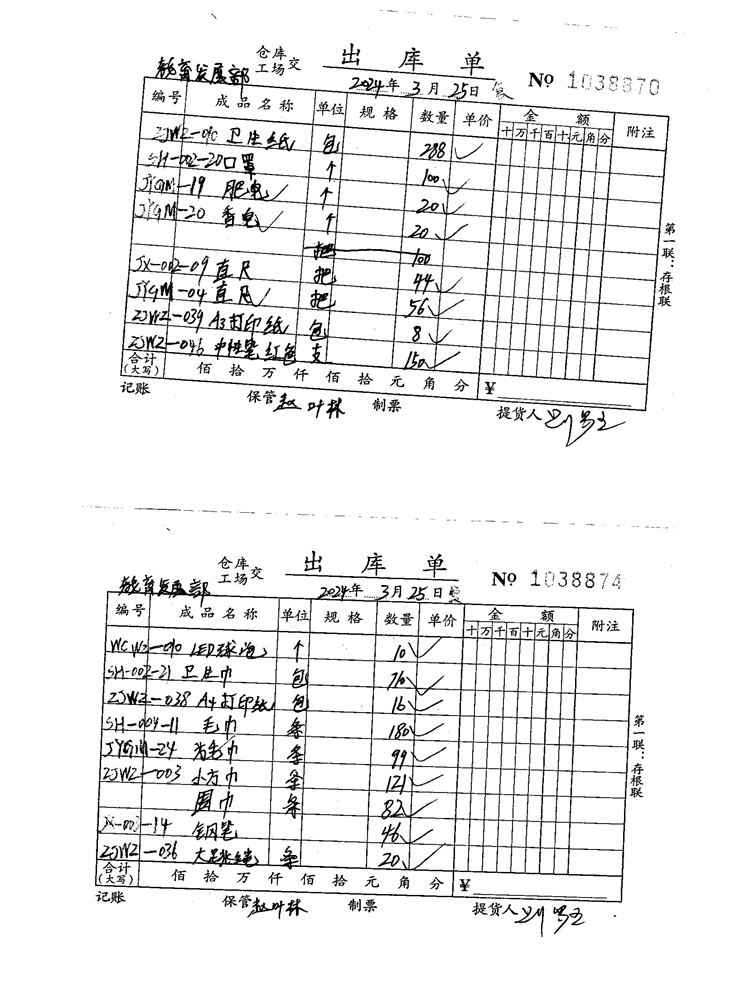 仓库
工场 交 出库单
教育发展部 2024年 3月 25日 № 1038870
编号 成品名称 单位 规格 数量 单价 金额 附注
十万千百十元角分
ZJWZ-090 卫生纸 包 288
SH-002-20 口罩 个 100
JYGM-19 肥皂 个 20
JYGM-20 香皂 个 20
把 100
JX-002-09 直尺 把 44
JYGM-04 直尺 把 56
ZJWZ-039 A3打印纸 包 8
ZJWZ-046 中性笔 红色 支 150
合计
(大写) 佰拾万仟佰拾元角分 ¥
记账 保管 赵叶林 制票 提货人
第一联：存根联
仓库
工场 交 出库单
教育发展部 2024年 3月 25日 № 1038874
编号 成品名称 单位 规格 数量 单价 金额 附注
十万千百十元角分
WCWZ-090 LED球泡 个 10
SH-002-21 卫生巾 包 76
ZJWZ-038 A4打印纸 包 16
SH-004-11 毛巾 条 180
JYGM-24 毛巾 条 99
ZJWZ-003 小方巾 条 121
围巾 条 82
JX-003-14 钢笔 46
ZJWZ-036 大 绳 条 20
合计
(大写) 佰拾万仟佰拾元角分 ¥
记账 保管 赵叶林 制票 提货人
第一联：存根联